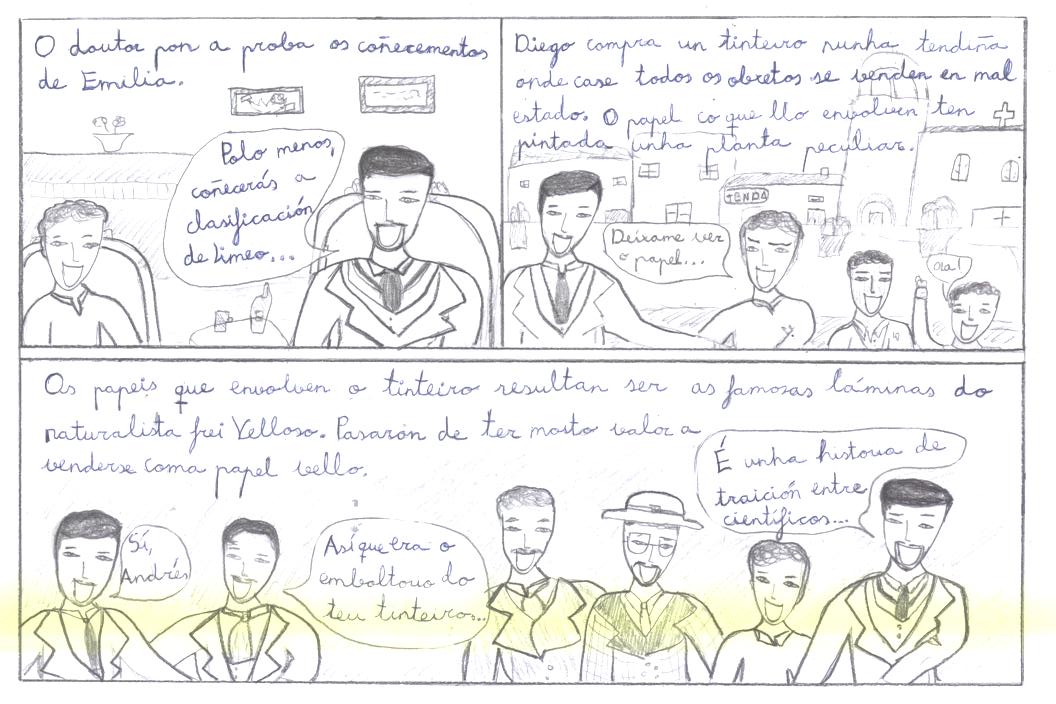 O doutor pon a proba os coñecementos
de Emilia.
Polo menos,
coñecerás a
clasificación
de Linneo...
Diego compra un tinteiro nunha tendiña
onde case todos os obxetos se venden en mal
estado. O papel co que llo envolven ten
pintada unha planta peculiar.
TENDA
Déixame ver
o papel...
Ola!
Os papeis que envolven o tinteiro resultan ser as famosas láminas do
naturalista frei Velloso. Pasaron de ter moito valor a
venderse coma papel vello.
Sí,
Andrés
Así que era o
embaltorio do
teu tinteiro...
É unha historia de
traición entre
científicos...